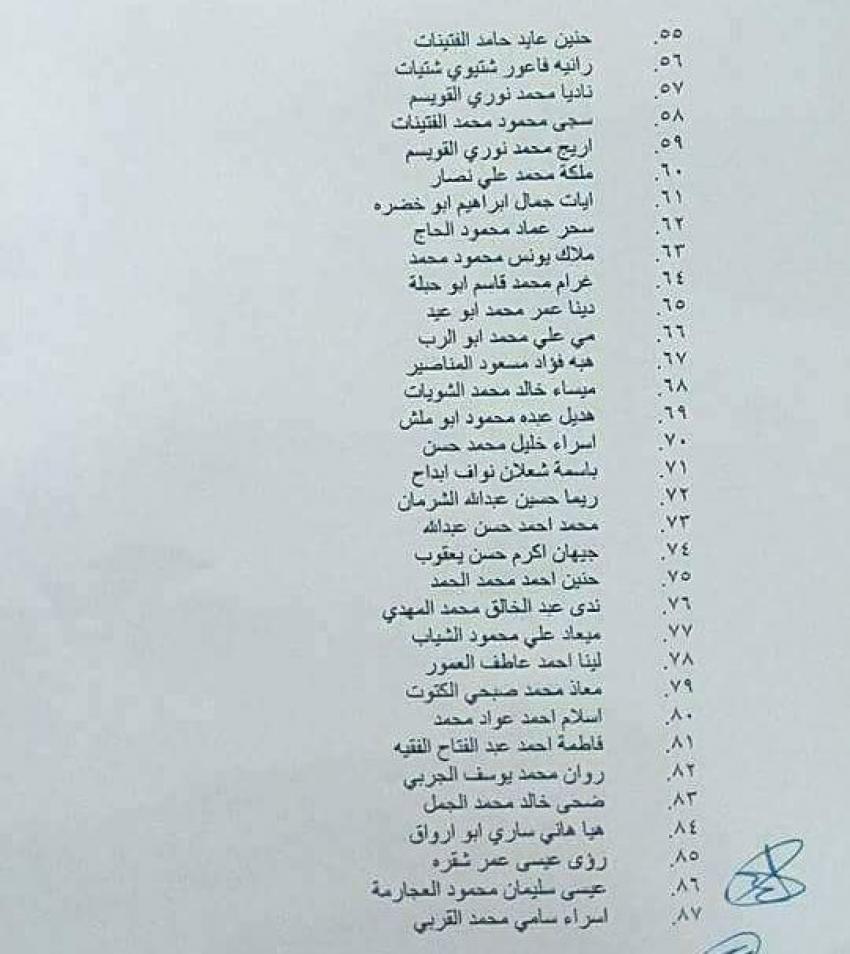 ٥٥. حنين عايد حامد الفتينات
٥٦. رانيه فاعور شتيوي شتيات
٥٧. ناديا محمد نوري القويسم
٥٨. سجى محمود محمد الفتينات
٥٩. اريج محمد نوري القويسم
٦٠. ملكة محمد علي نصار
٦١. ايات جمال ابراهيم ابو خضره
٦٢. سحر عماد محمود الحاج
٦٣. ملاك يونس محمود محمد
٦٤. غرام محمد قاسم ابو حبلة
٦٥. دينا عمر محمد ابو عيد
٦٦. مي علي محمد ابو الرب
٦٧. هبه فؤاد مسعود المناصير
٦٨. ميساء خالد محمد الشويات
٦٩. هديل عبده محمود ابو ملش
٧٠. اسراء خليل محمد حسن
٧١. باسمة شعلان نواف ابداح
٧٢. ريما حسين عبدالله الشرمان
٧٣. محمد احمد حسن عبدالله
٧٤. جيهان اكرم حسن يعقوب
٧٥. حنين احمد محمد الحمد
٧٦. ندى عبد الخالق محمد المهدي
٧٧. ميعاد علي محمود الشياب
٧٨. لينا احمد عاطف العمور
٧٩. معاذ محمد صبحي الكتوت
٨٠. اسلام احمد عواد محمد
٨١. فاطمة احمد عبد الفتاح الفقيه
٨٢. روان محمد يوسف الجربي
٨٣. ضحى خالد محمد الجمل
٨٤. هيا هاني ساري ابو ارواق
٨٥. رؤى عيسى عمر شقره
٨٦. عيسى سليمان محمود العجارمة
٨٧. اسراء سامي محمد القربي